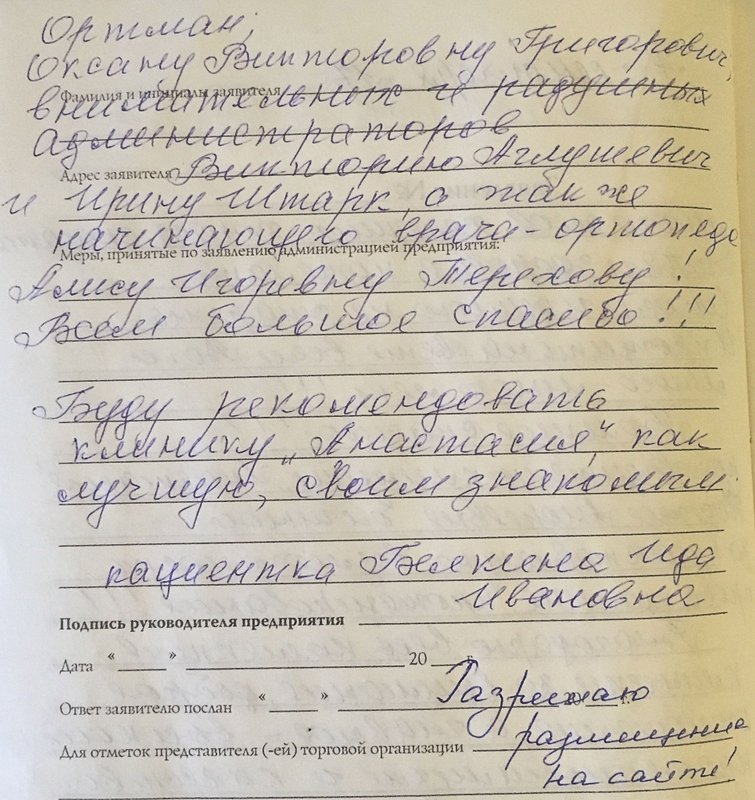 Ортман,
Оксану Викторовну Григорович,
Фамилия и инициалы заявителя
внимательных и радушных
администраторов
Адрес заявителя Викторию Аглушевич
и Ирину Штарк, а так же
начинающего врача-ортопеда
Меры, принятые по заявлению администрацией предприятия:
Алису Игоревну Терехову!
Всем большое спасибо!!!
Буду рекомендовать
клинику „Анастасия", как
лучшую, своим знакомым.
пациентка Белкина Ида
Ивановна
Подпись руководителя предприятия
Дата « » 20 г.
Ответ заявителю послан « » Разрешаю
Для отметок представителя (-ей) торговой организации размещение
на сайте!